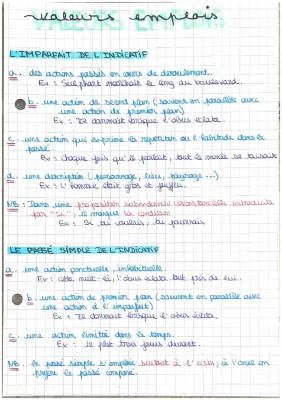 valeurs emplois
L'IMPARFAIT DE L'INDICATIF
a. des actions passés en cours de déroulement.
Ex : marchait le long du boulevard.
b. une action de second plan (souvent en parallèle avec
une action de premier plan)
Ex : Je dormait lorsque l'obus éclata.
c. une action qui exprime la répétition ou l'habitude dans le
passé.
Ex : chaque fois qu'il parlait, tout le monde se taisait
d. une description (personnage, lieu, paysage...)
Ex : L'homme était gros et
NB : Dans une proposition subordonnée circonstancielle introduite
par "si", il marque la condition
Ex : Si tu voulais, tu pourrais
LE PASSÉ SIMPLE DE L'INDICATIF
a. une action ponctuelle, inhabituelle.
Ex : cette nuit-là, l'obus éclata tout près de lui.
b. une action de premier plan (souvent en parallèle avec
une action à l'imparfait)
Ex : Je dormait lorsque l'obus éclata.
c. une action limitée dans le temps.
Ex : il plut trois jours durant.
NB. le passé simple s'emploie surtout à l'écrit ; à l'oral on
préfère le passé composé.